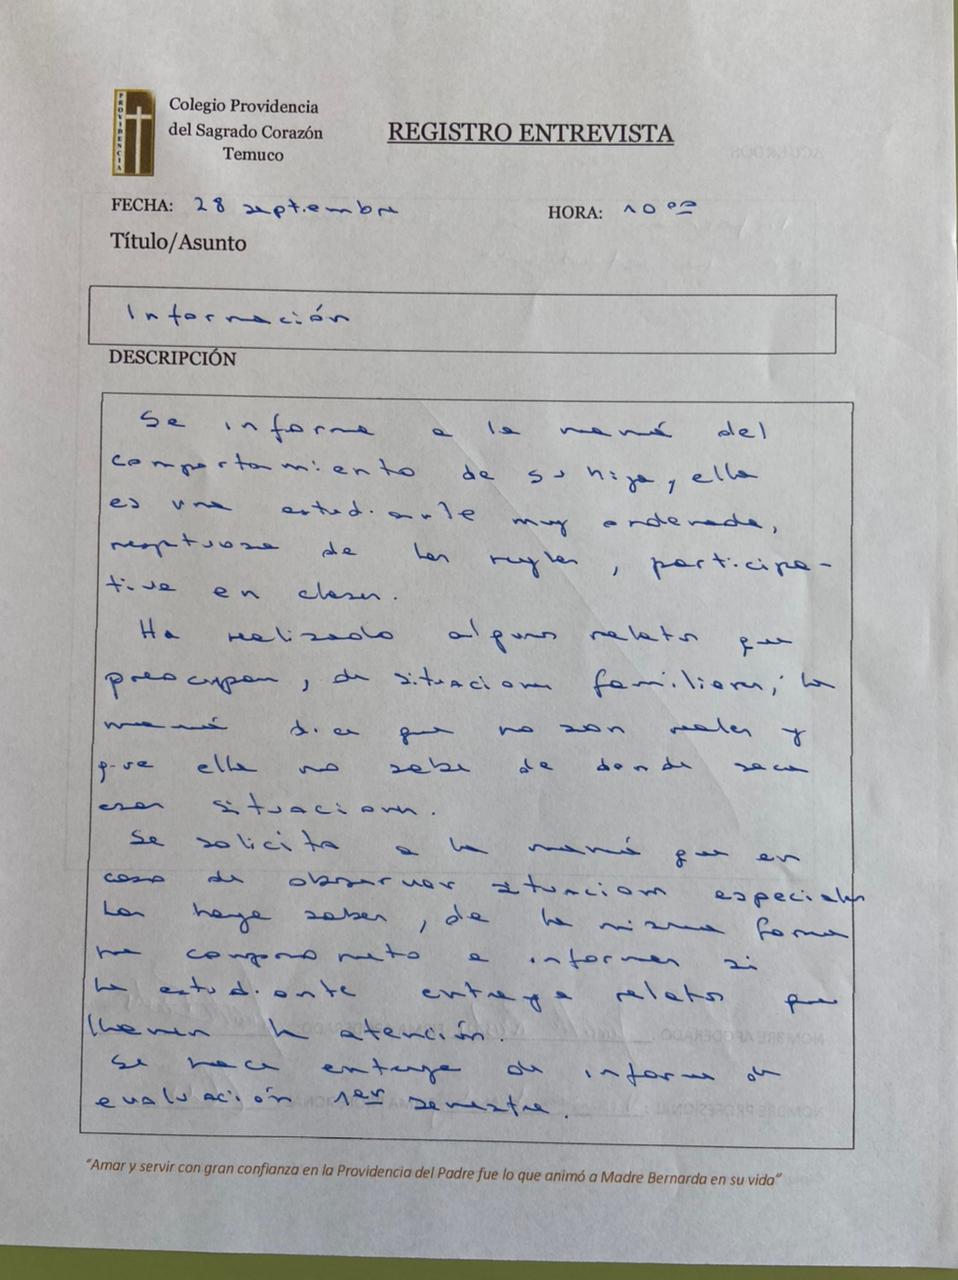 PROVIDENCIA
Colegio Providencia
del Sagrado Corazón
Temuco
REGISTRO ENTREVISTA
FECHA: 28 septiembre
HORA: 10 ºº
Título/Asunto
Información
DESCRIPCIÓN
Se informa a la mamá del
comportamiento de su hija, ella
es una estudiante muy ordenada,
respetuosa de las reglas, participa-
tiva en clases.
Ha realizado algunos relatos que
preocupan, de situaciones familiares; la
mamá dice que no son reales y
que ella no sabe de donde saca
esas situaciones.
Se solicita a la mamá que en
caso de observar situaciones especiales
las haga saber, de la misma forma
me comprometo a informar si
la estudiante entrega relatos que
llamen la atención.
Se hace entrega de informe de
evaluación 1er semestre.
"Amar y servir con gran confianza en la Providencia del Padre fue lo que animó a Madre Bernarda en su vida"